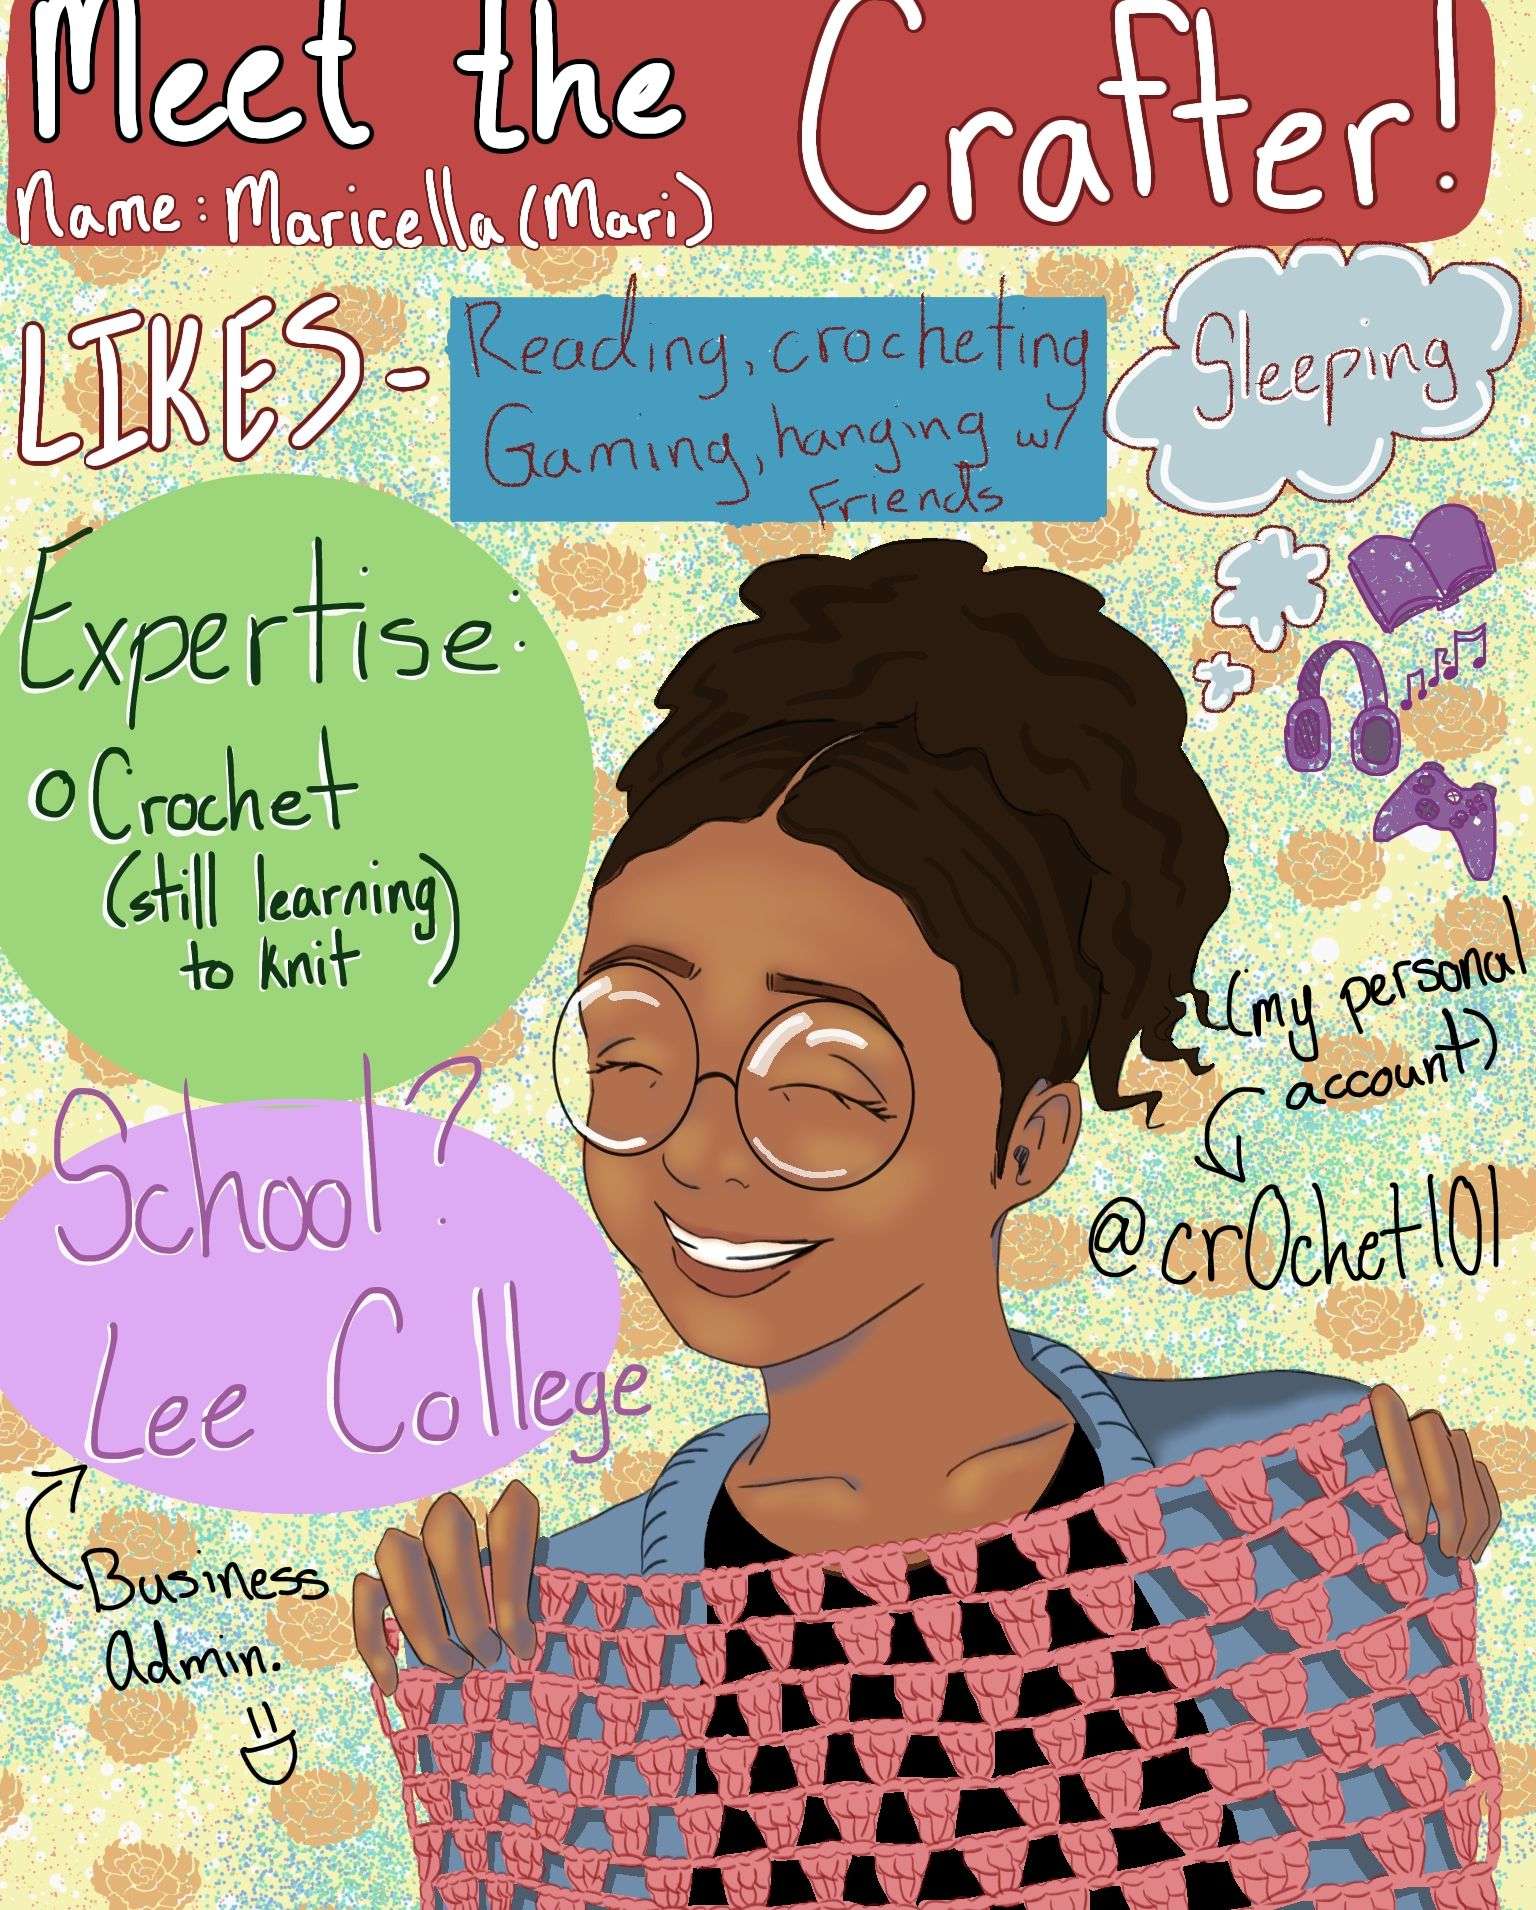 Meet the Crafter!
Name: Maricella (Mari)
LIKES-
Reading, crocheting
Gaming, hanging w/
Friends
Sleeping
Expertise:
Crochet
(still learning)
to knit
(my personal
account)
@cr0chet101
School?
Lee College
Business
Admin.